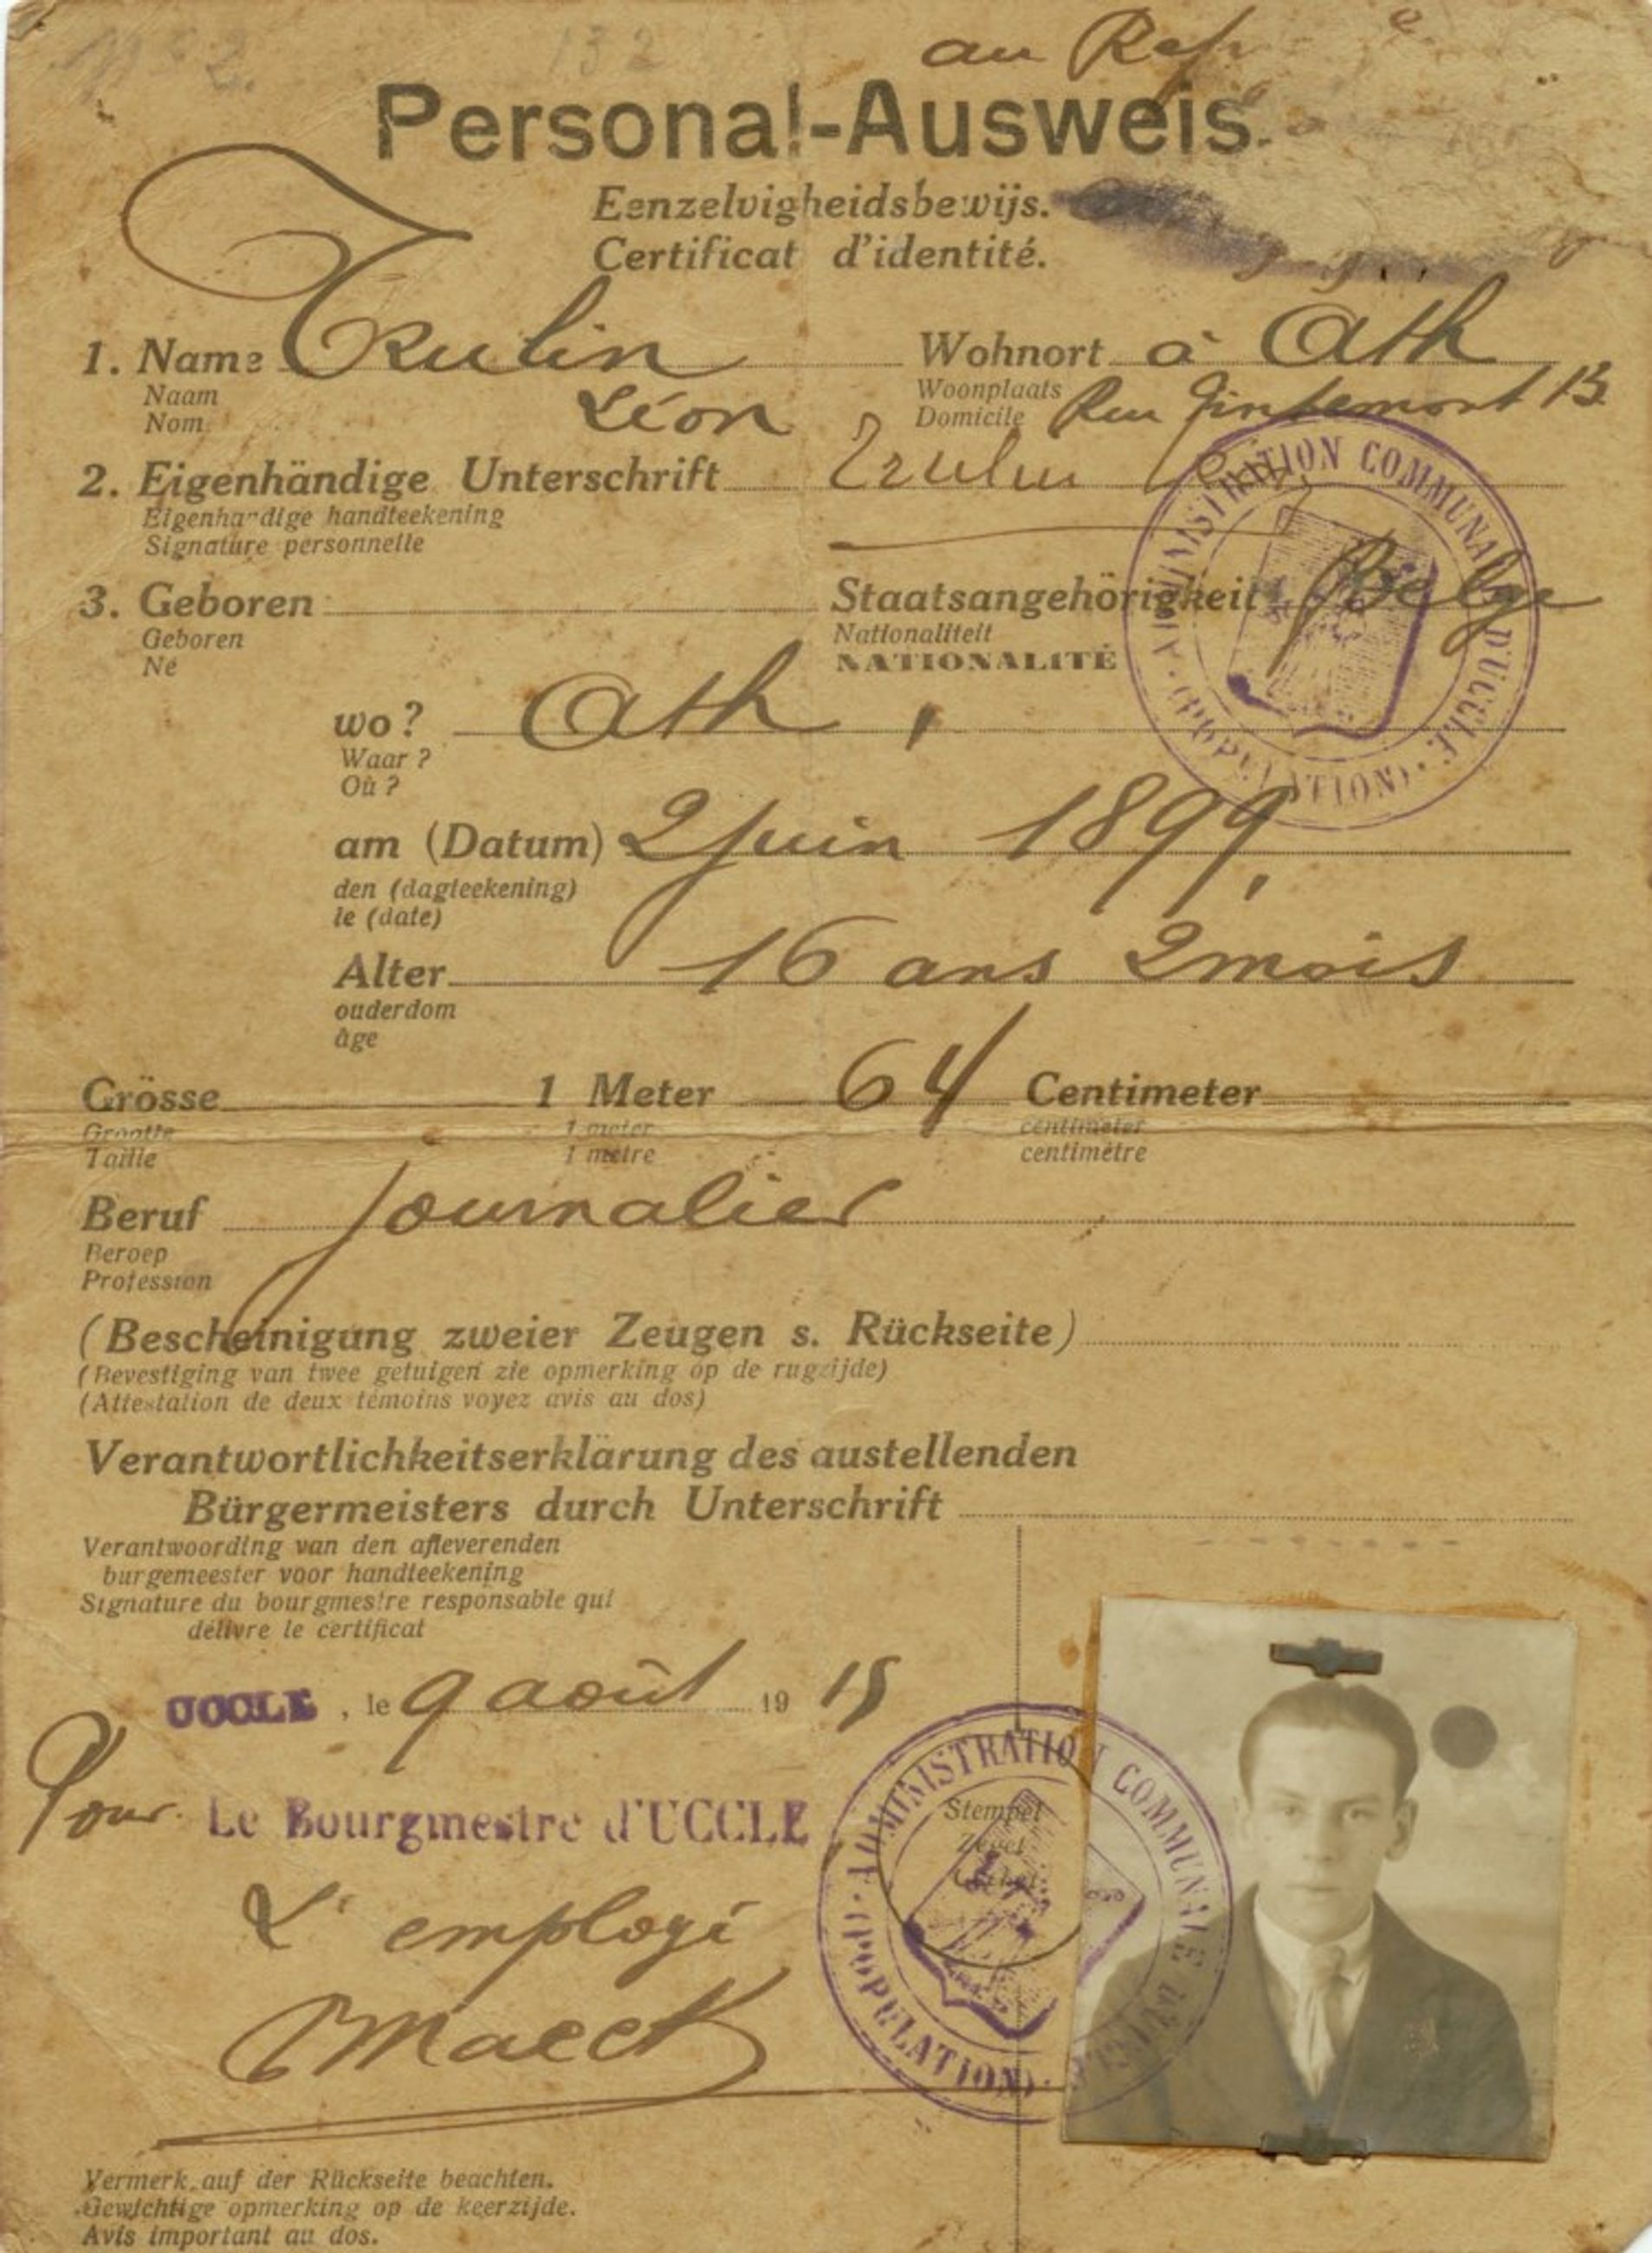 Nº 2.
132
au
Personal-Ausweis.
Eenzelvigheidsbewijs.
Certificat d'identité.
1. Name Trulin Wohnort à Ath
Naam Woonplaats
Nom Léon Domicile Rue 13
2. Eigenhändige Unterschrift Trulin Léon
Eigenhandige handteekening
Signature personnelle
3. Geboren Staatsangehörigkeit Belge
Geboren Nationaliteit
Né NATIONALITÉ
ADMINISTRATION COMMUNALE D'UCCLE
(POPULATION)
wo? Ath,
Waar?
Où?
am (Datum) 2 juin 1899,
den (dagteekening)
le (date)
Alter 16 ans 2 mois
ouderdom
âge
Grösse 1 Meter 64 Centimeter
Grootte 1 meter centimeter
Taille 1 mètre centimètre
Beruf journalier
Beroep
Profession
(Bescheinigung zweier Zeugen s. Rückseite)
(Bevestiging van twee getuigen zie opmerking op de rugzijde)
(Attestation de deux témoins voyez avis au dos)
Verantwortlichkeitserklärung des austellenden
Bürgermeisters durch Unterschrift
Verantwoording van den afleverenden
burgemeester voor handteekening
Signature du bourgmestre responsable qui
délivre le certificat
UCCLE, le 9 août 1915
Pour Le Bourgmestre d'UCCLE
L'employé
Maeck
Stempel
Zegel
Cachet
ADMINISTRATION COMMUNALE D'UCCLE
(POPULATION)
Vermerk auf der Rückseite beachten.
Gewichtige opmerking op de keerzijde.
Avis important au dos.